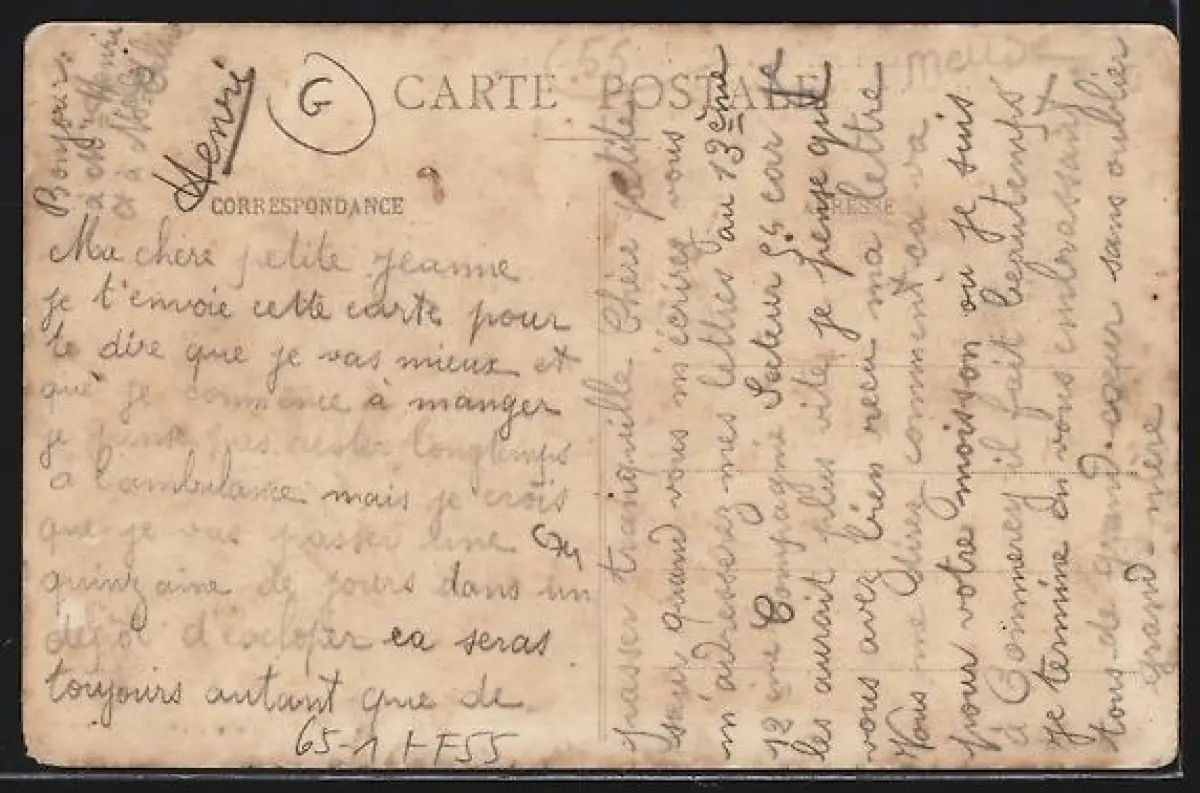 CARTE POSTALE
CORRESPONDANCE
Ma chère petite Jeanne
je t'envoie cette carte pour
te dire que je vas mieux et
que je commence à manger
je pense pas rester longtemps
a l'ambulance mais je crois
que je vas passer une
quinzaine de jours dans un
depot d'ecloper ca seras
toujours autant que de
passer tranquille Chère petite
seur quand vous m'écrirez vous
m'adresserez mes lettres au 13ème
12 eme Compagnie Secteur 55 car je
les aurait plus vite je pense que
vous avez bien reçu ma lettre
Vous me direz comment ca va
pour votre moisson où je suis
à Commercy il fait beau temps
je termine en vous embrassant
tous de grand coeur sans oublier
grand-mère
Henri
Bonjour
à Mr Henri
et à
G
65-1 HF55